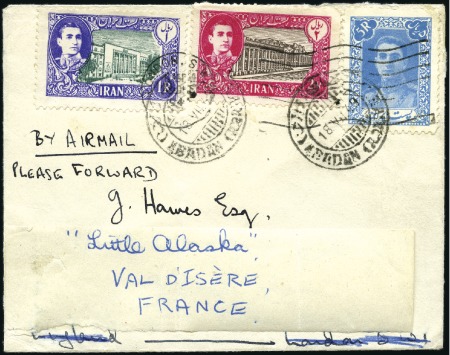 ریال
1R
IRAN
IRAN
5R
ABADAN
ABADAN
BY AIRMAIL
PLEASE FORWARD
J. Hawes Esq.
"Little Alaska"
VAL D'ISÈRE,
FRANCE.
England London